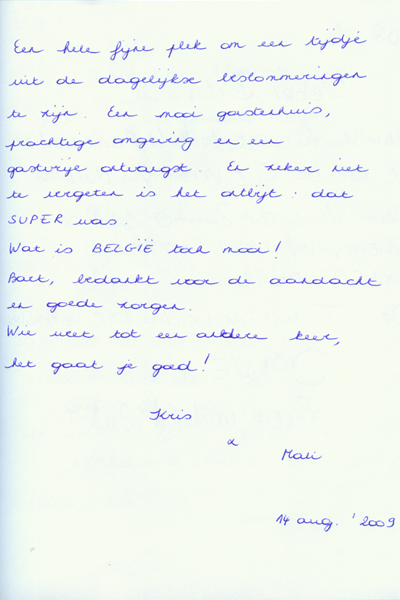 Een hele fijne plek om een tijdje
uit de dagelijkse beslommeringen
te zijn. Een mooi gastenhuis,
prachtige omgeving en een
gastvrije ontvangst. En zeker niet
te vergeten is het ontbijt: dat
SUPER was.
Wat is BELGIË toch mooi!
Bart, bedankt voor de aandacht
en goede zorgen.
Wie weet tot een andere keer,
het gaat je goed!
Kris
&
14 aug. '2009